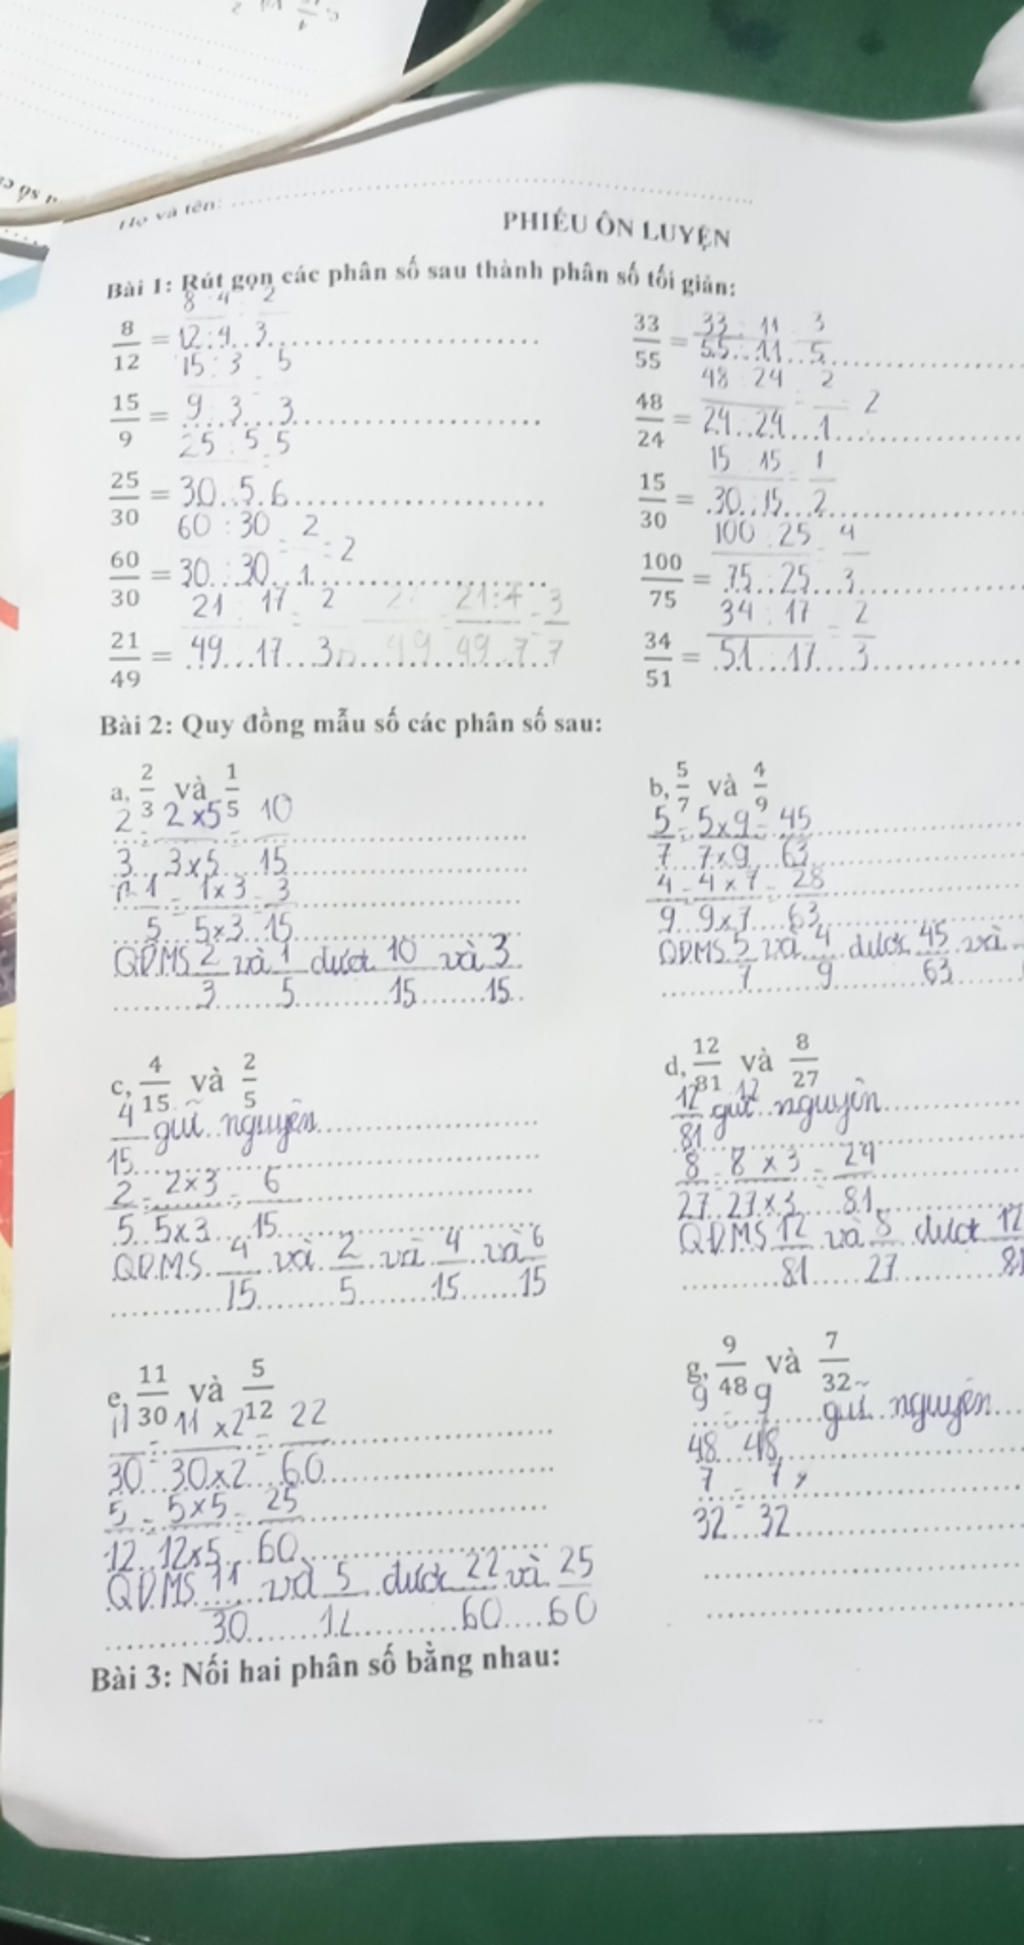 Họ và tên:
PHIẾU ÔN LUYỆN
Bài 1: Rút gọn các phân số sau thành phân số tối giản:
8/12 = 8:4/12:4 = 2/3
33/55 = 33:11/55:11 = 3/5
15/9 = 15:3/9:3 = 5/3
48/24 = 48:24/24:24 = 2/1 = 2
25/30 = 25:5/30:5 = 5/6
15/30 = 15:15/30:15 = 1/2
60/30 = 60:30/30:30 = 2/1 = 2
100/75 = 100:25/75:25 = 4/3
21/49 = 21:17/49:17 = 2/3 21:7/49:7 = 3/7
34/51 = 34:17/51:17 = 2/3
Bài 2: Quy đồng mẫu số các phân số sau:
a, 2/3 và 1/5
2/3 = 2×5/3×5 = 10/15
1/5 = 1×3/5×3 = 3/15
QĐMS 2/3 và 1/5 được 10/15 và 3/15
b, 5/7 và 4/9
5/7 = 5×9/7×9 = 45/63
4/9 = 4×7/9×7 = 28/63
QĐMS 5/7 và 4/9 được 45/63 và
c, 4/15 và 2/5
4/15 giữ nguyên
2/5 = 2×3/5×3 = 6/15
QĐMS 4/15 và 2/5 và 4/15 và 6/15
d, 12/81 và 8/27
12/81 giữ nguyên
8/27 = 8×3/27×3 = 24/81
QĐMS 12/81 và 8/27 được 12/81
e, 11/30 và 5/12
11/30 = 11×2/30×2 = 22/60
5/12 = 5×5/12×5 = 25/60
QĐMS 11/30 và 5/12 được 22/60 và 25/60
g, 9/48 và 7/32
9/48 = 9/48 giữ nguyên
7/32 = 7×/32
Bài 3: Nối hai phân số bằng nhau: